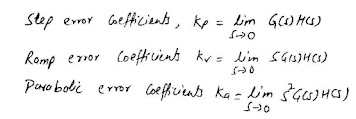 Step error Coefficients, Kp = lim S→0 G(s)H(s)
Ramp error Coefficients Kv = lim S→0 SG(s)H(s)
Parabolic error Coefficients Ka = lim S→0 S²G(s)H(s)